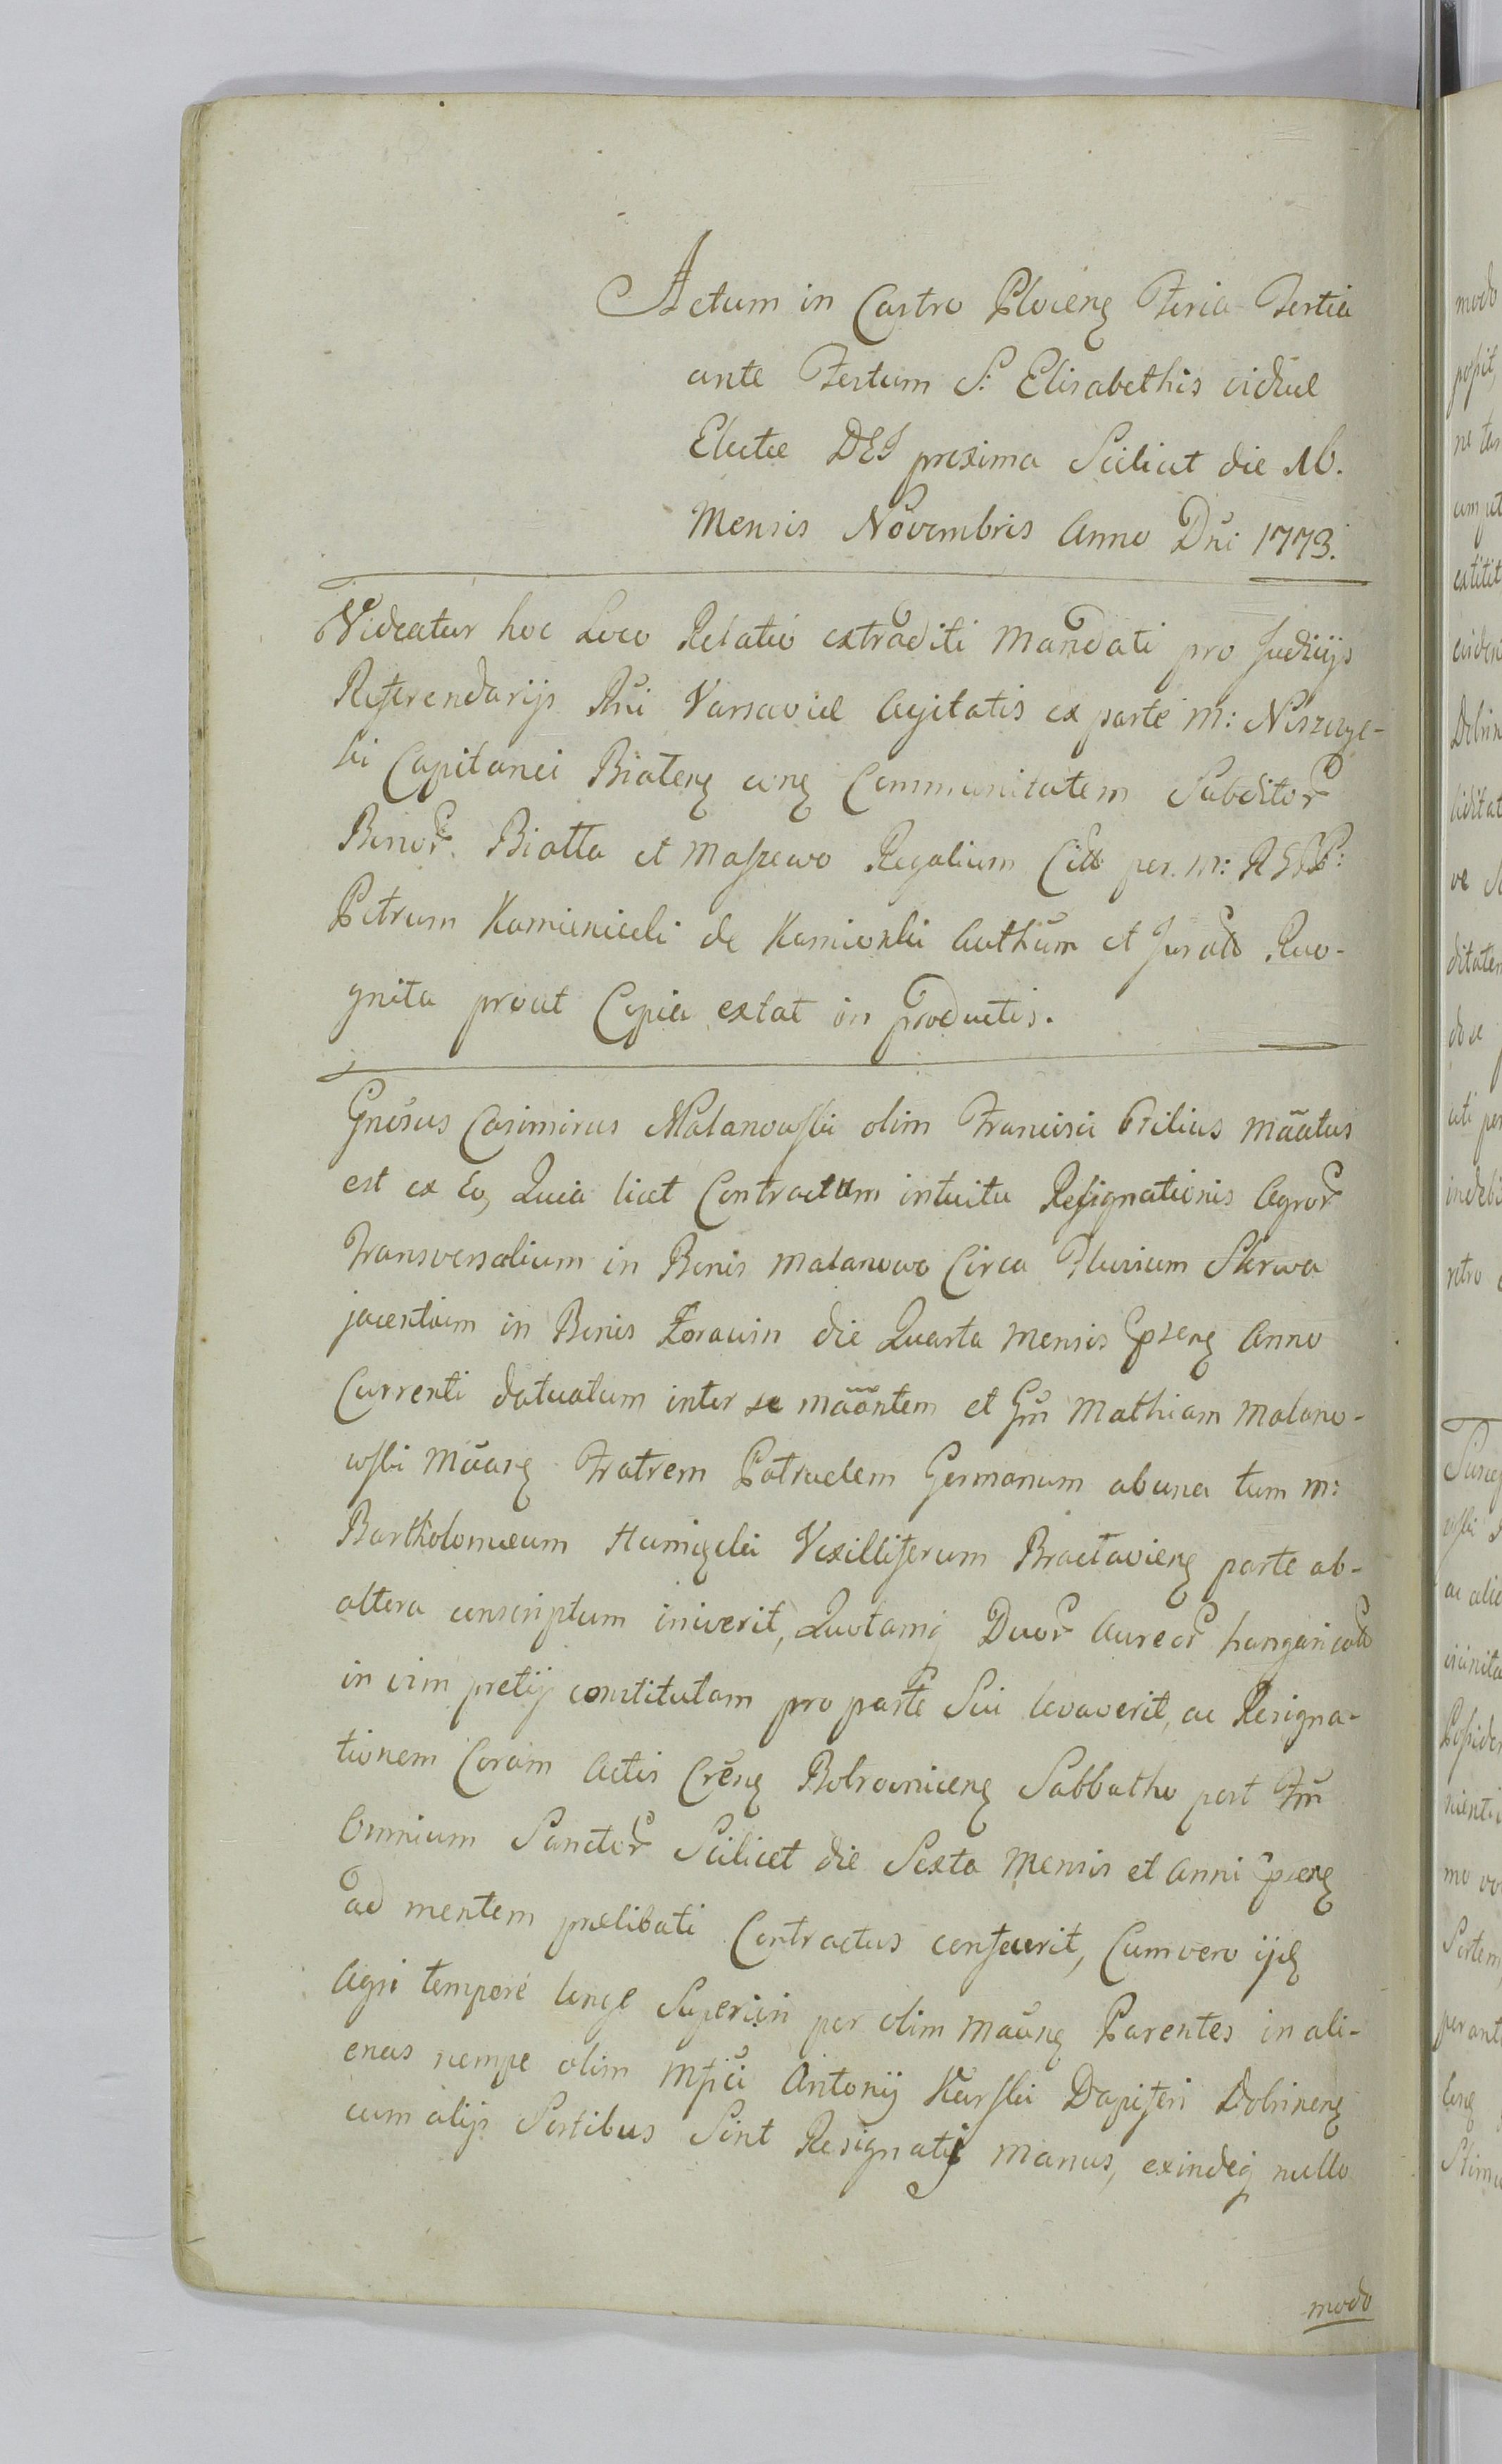 Actum in Castro Plocen Feria Tertia
ante Festum S: Elisabethis viduæ
Electæ DEI proxima Scilicet die 16.
Mensis Novembris Anno Dni 1773.
Videatur hoc Loco Relatio extraditi Mandati pro Judicijs
Referendarijs Rni Varsaviæ Agitatis ex parte M: Niszczyc-
ki Capitanei Biaten con Communitatem Subditor
Bonor Biatta et Maszewo Regalium Citt per M:
Petrum Kamieniecki de Kamionki Authum et Jurato Reco-
gnita prout Copia extat in productis.
Gnosus Casimirus Malanowski olim Francisci Filius mãatus
est ex Eo, Quia licet Contractum intuitu Resignationis Agror
Transversalium in Bonis Malanowo Circa Fluvium Skrwa
jacentium in Bonis Zorawin die Quarta Mensis psen Anno
Currenti datuatum inter se mãantem et Gm Mathiam Malano-
wski mãan Fratrem Patruelem Germanum ab una tum M:
Bartholomæum Humięcki Vexilliferum Bractavien parte ab-
altera conscriptum iniverit, Quotamq Duor Aureor hungarical
in vim pretij constitutam pro parte Sui levaverit, ac Resigna-
tionem Coram Actis Cren Bobrownicen Sabbatho post Fm
Omnium Sanctor Scilicet die Sexta Mensis et Anni psen
ad mentem prælibati Contractus confecerit, Cum vero ijd
Agri tempore longe Superiori per olim mãan Parentes in ali-
enas nempe olim Mfici Antonij Karski Dapiferi Dobrinen
cum alijs Sortibus Sint Resignati manus, exindeq nullo
modo